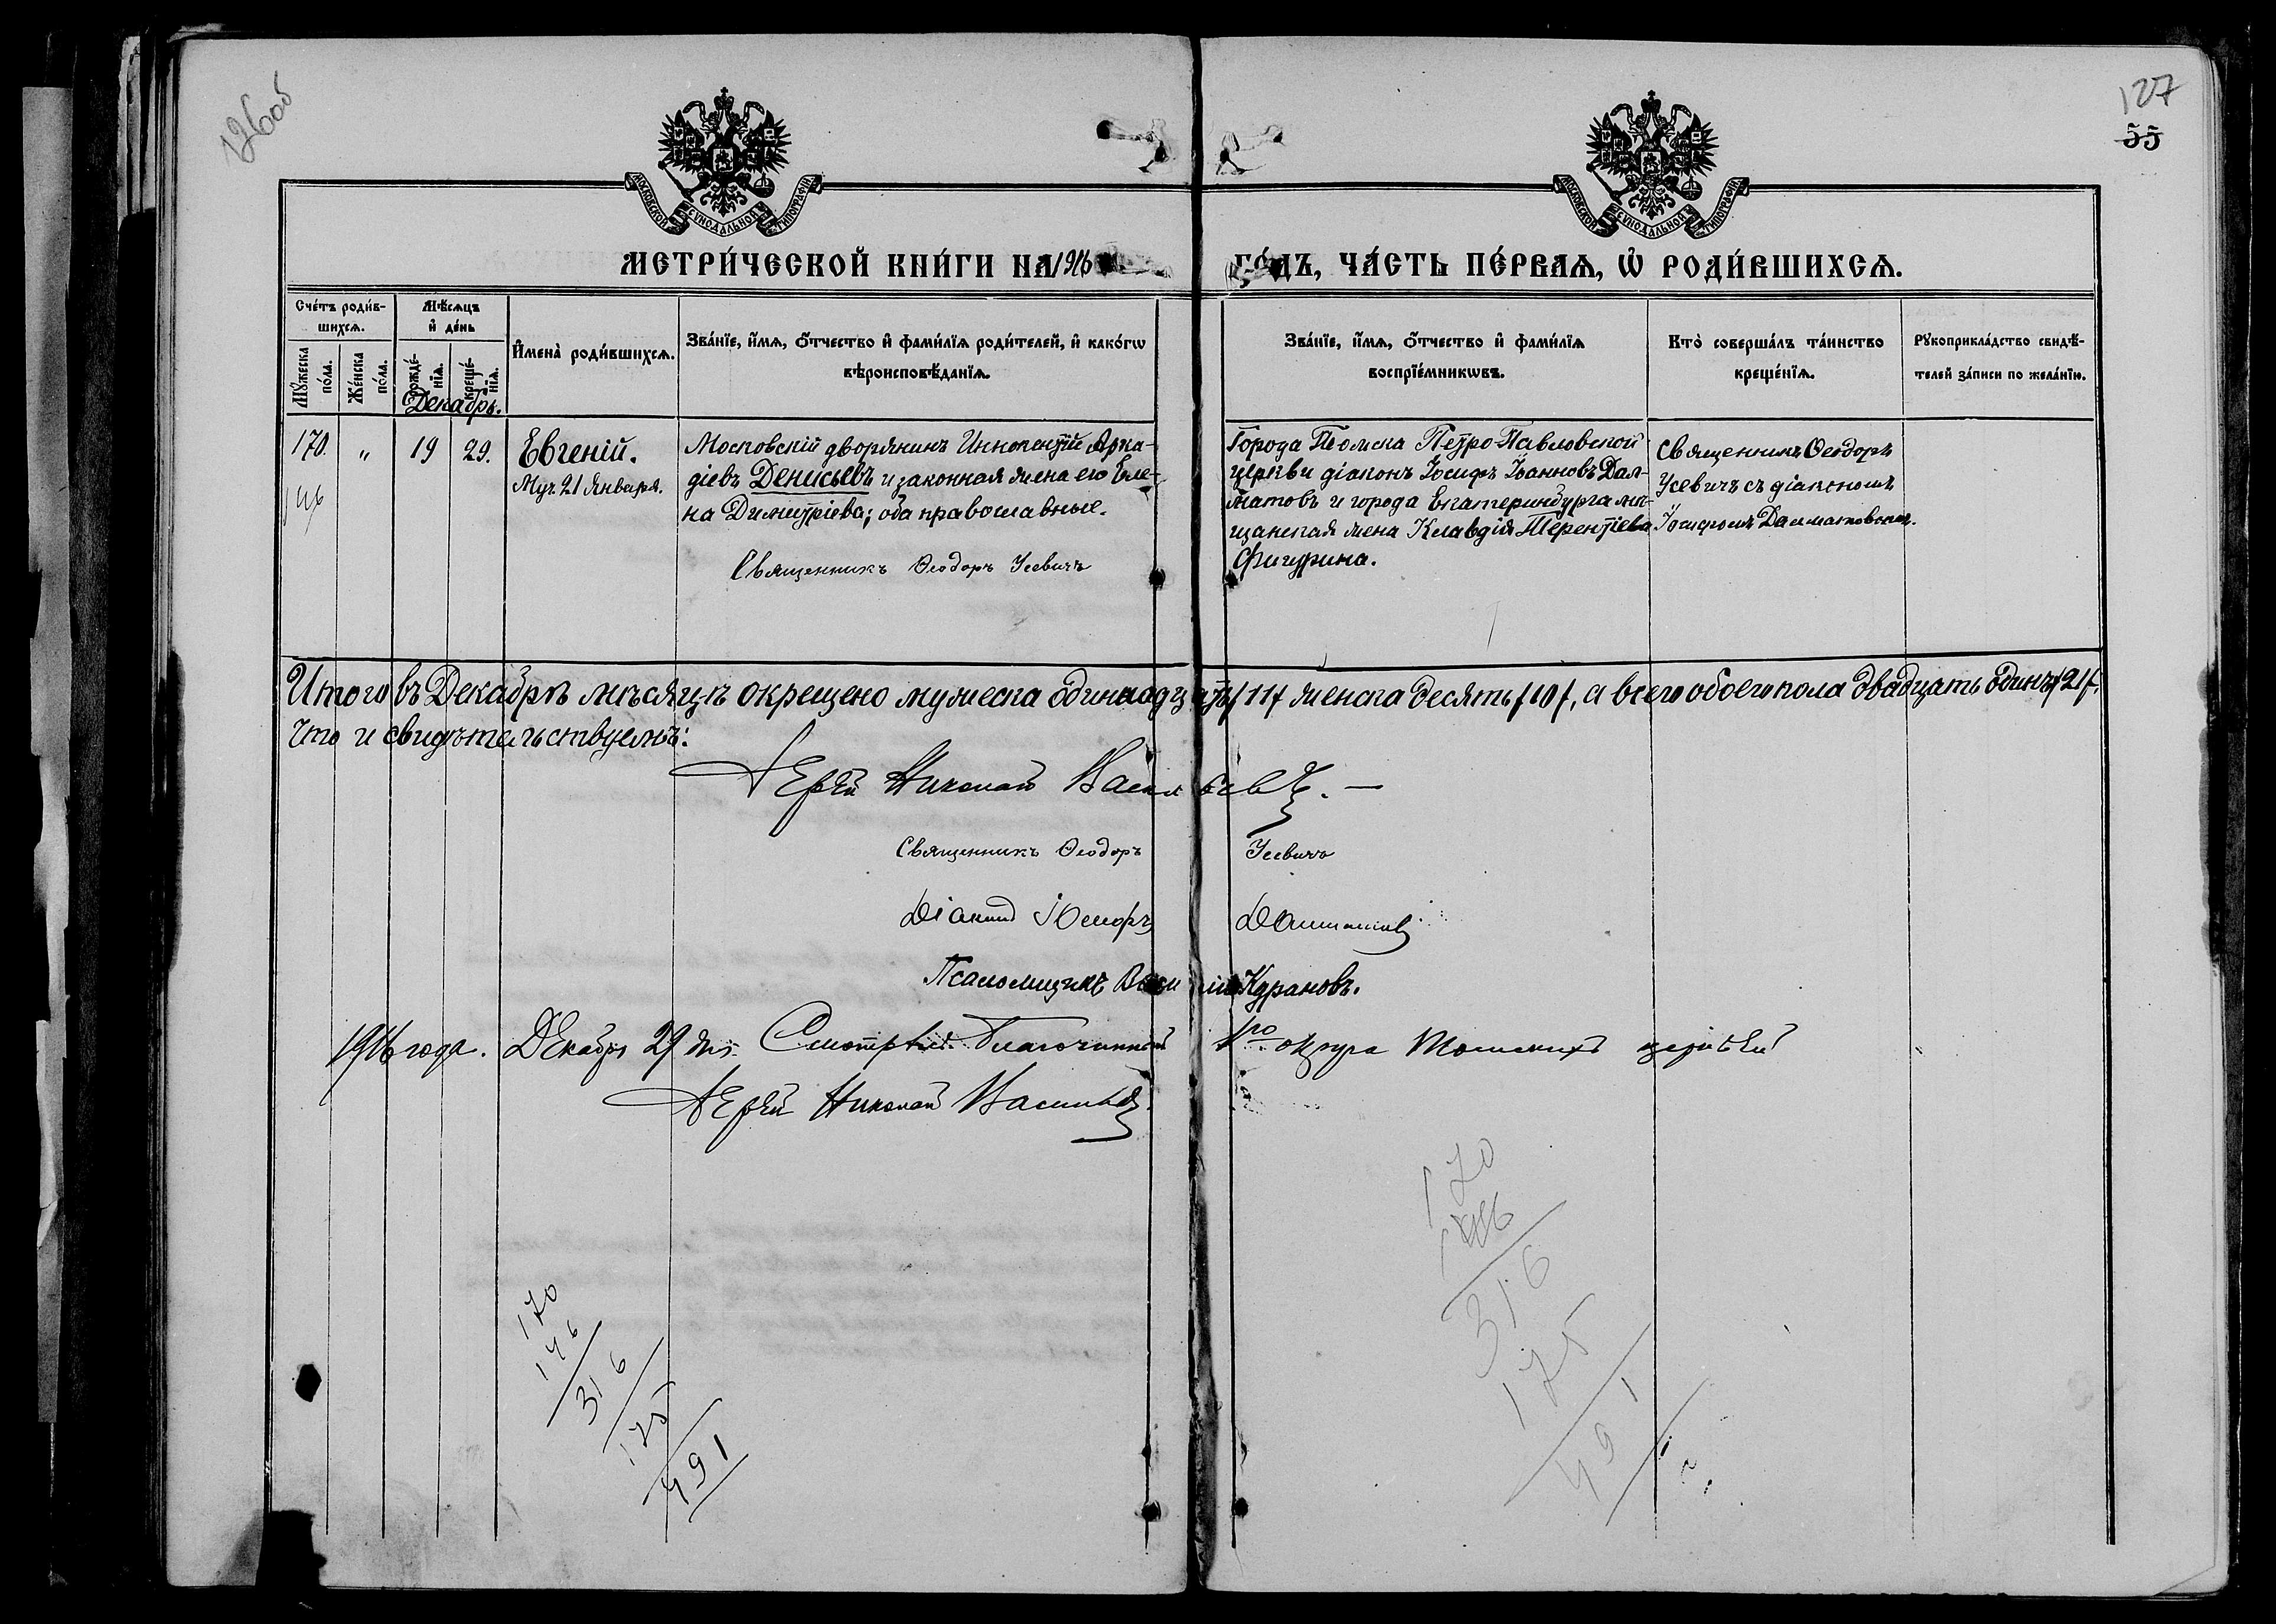 126об
127
55
МОСКОВСКОЙ СѴНОДАЛЬНОЙ ТИПОГРАФІИ
МОСКОВСКОЙ СѴНОДАЛЬНОЙ ТИПОГРАФІИ
МЕТРИ́ЧЕСКОЙ КНИ́ГИ НА 1916
ГО́ДЪ, ЧА́СТЬ ПЕ́РВАѦ, Ѡ҆ РОДИ́ВШИХСѦ.
Сче́тъ роди́в-
шихсѧ.
Мѣ́сѧцъ
и҆ де́нь
Мꙋ́жеска
по́ла.
Же́нска
по́ла.
рожде́-
нїѧ.
креще́-
нїѧ.
И҆мена̀ роди́вшихсѧ.
Зва́нїе, и҆́мѧ, ѻ҆́тчество и҆ фами́лїѧ роди́телей, и҆ како́гѡ
вѣроисповѣ́данїѧ.
Зва́нїе, и҆́мѧ, ѻ҆́тчество и҆ фами́лїѧ
воспрїе́мникѡвъ.
Кто̀ соверша́лъ та́инство
креще́нїѧ.
Рꙋкоприкла́дство свидѣ́-
телей за́писи по жела́нїю.
Декабрь.
170. " 19 29. Евгеній.
Муч. 21 Января.
146
Московскій дворянинъ Иннокентій Арка-
діевъ Денисьевъ и законная жена его Еле-
на Димитріева; оба православные.
Священникъ Ѳеодоръ Усевичъ
Города Томска Петро-Павловской
церкви діаконъ Іосифъ Іоанновъ Дал-
матовъ и города Екатеринбурга мѣ-
щанская жена Клавдія Терентіева
Фигурина.
Священникъ Ѳеодоръ
Усевичъ съ діакономъ
Іосифомъ Далматовымъ.
Итого въ Декабрѣ мѣсяцѣ окрещено мужеска одиннадцать /11/ женска десять /10/, а всего обоего пола двадцать одинъ /21/.
Что и свидѣтельствуемъ:
Іерей Николай Васильевъ. —
Священникъ Ѳеодоръ Усевичъ
Діаконъ Іосифъ Далматовъ
Псаломщикъ Василій Курановъ.
1916 года. Декабря 29 дня. Смотрѣлъ Благочинный 1го округа Томскихъ церквей
Іерей Николай Васильевъ
170
146
316
175
491
170
146
316
175
491